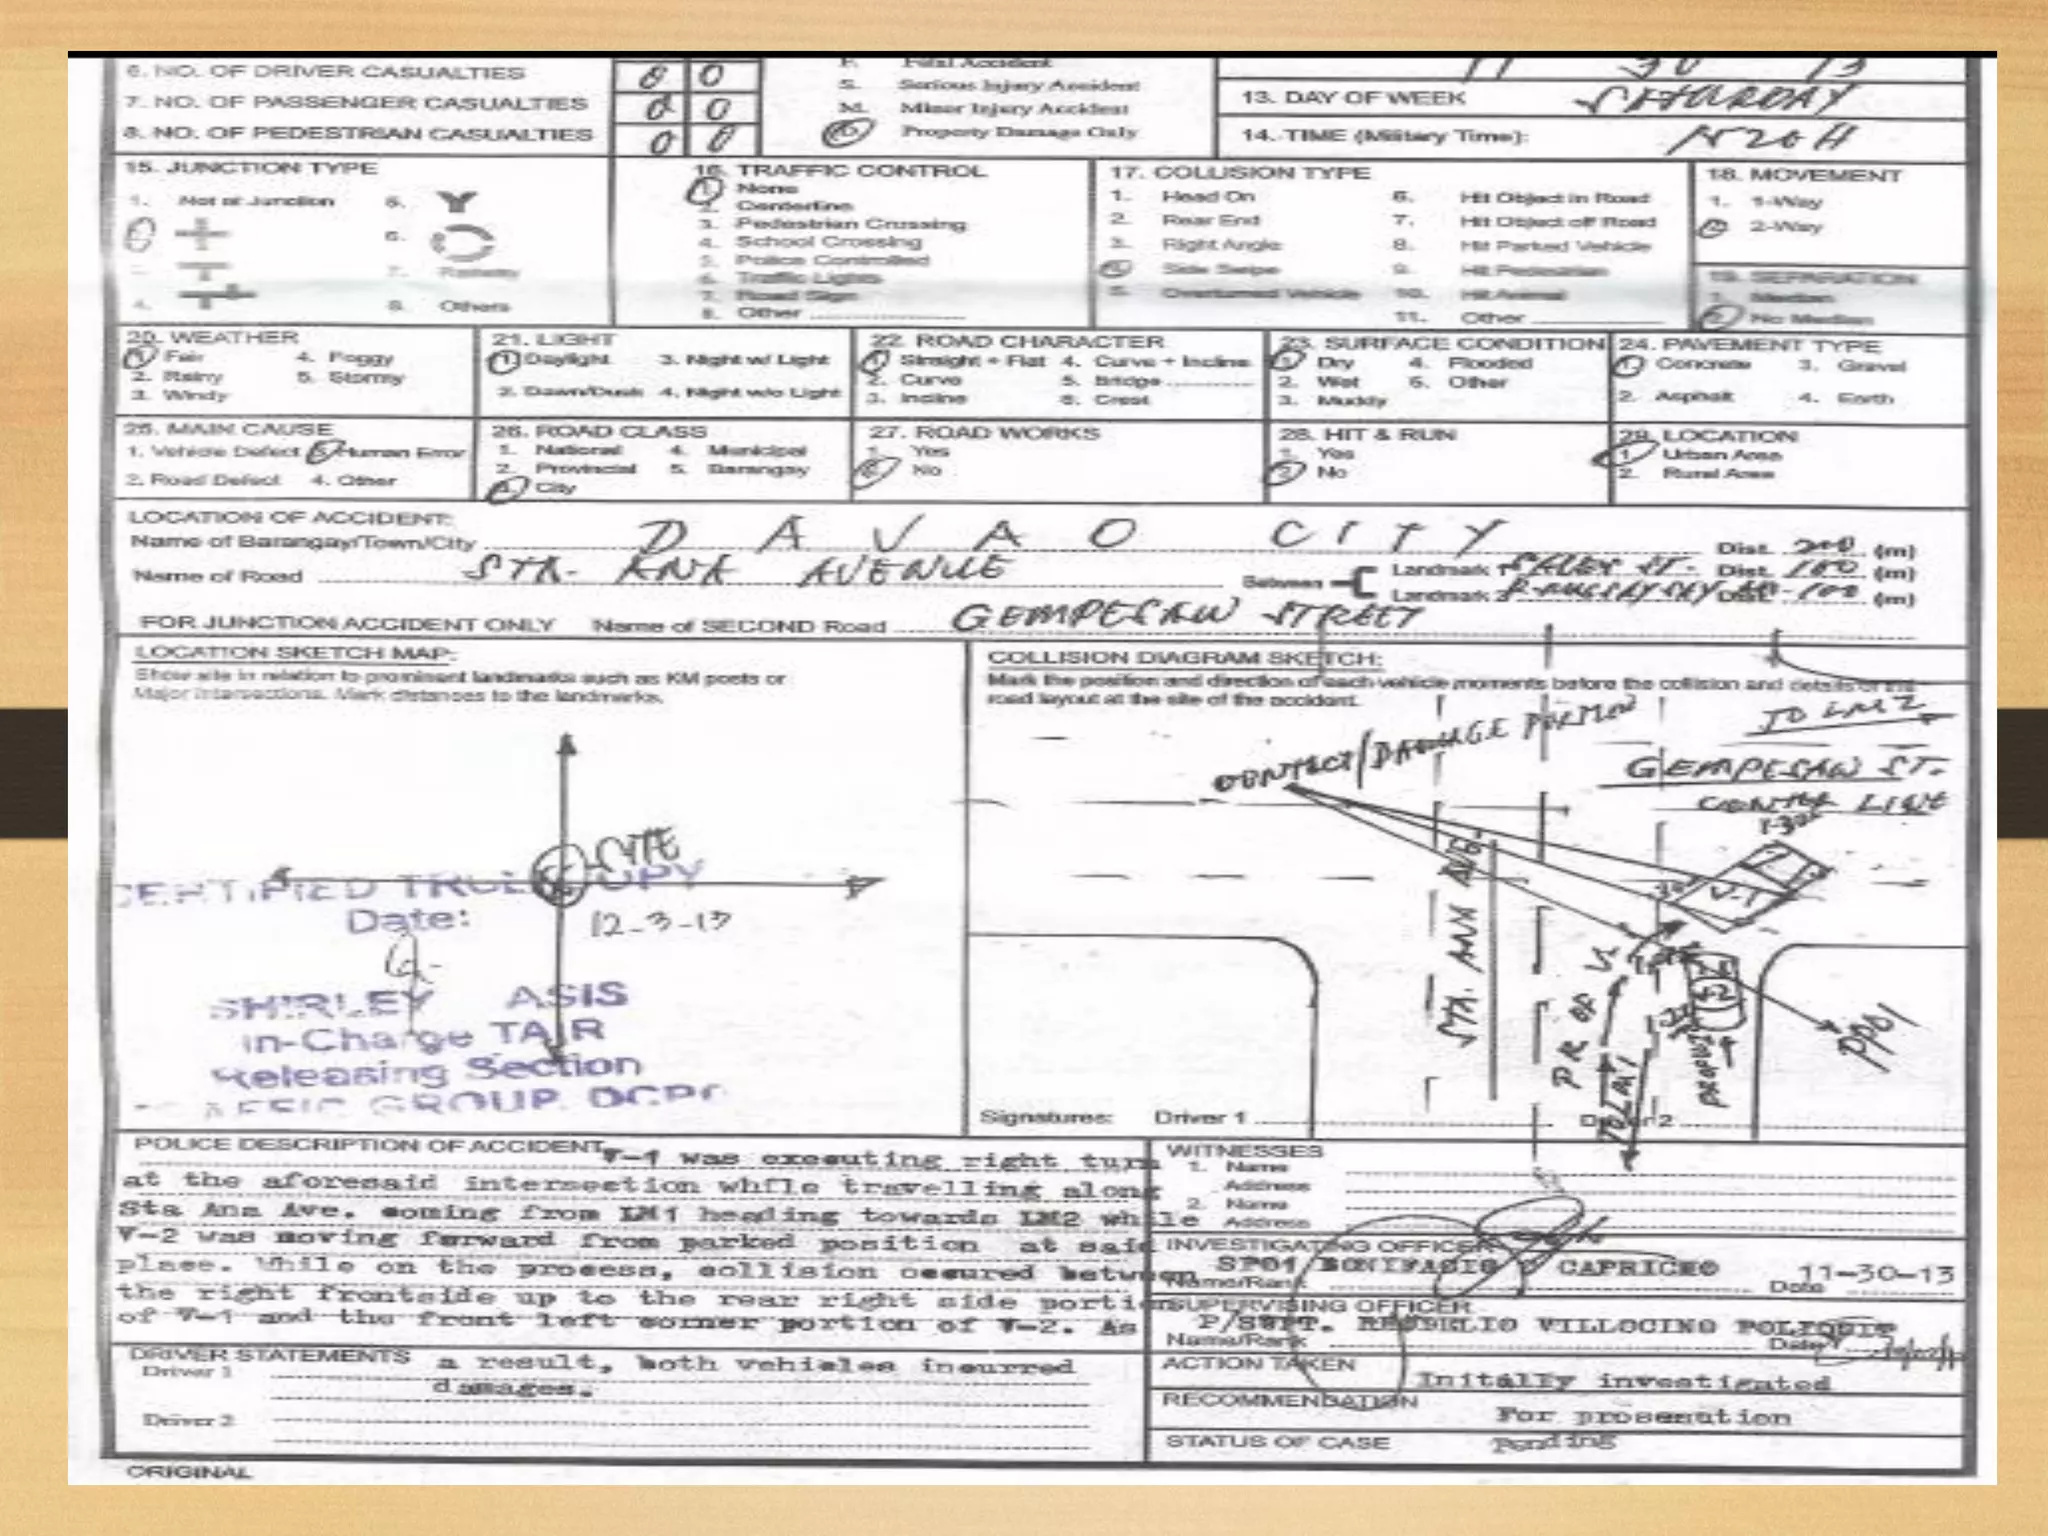 6. NO. OF DRIVER CASUALTIES 0 0
7. NO. OF PASSENGER CASUALTIES 0 0
8. NO. OF PEDESTRIAN CASUALTIES 0 0
F. Fatal Accident
S. Serious Injury Accident
M. Minor Injury Accident
Property Damage Only
11 30 13
13. DAY OF WEEK SATURDAY
14. TIME (Military Time):
15. JUNCTION TYPE
1. Not at Junction 5.
6.
7. Railway
4. 8. Others
16. TRAFFIC CONTROL
1. None
2. Centerline
3. Pedestrian Crossing
4. School Crossing
5. Police Controlled
6. Traffic Lights
7. Road Sign
8. Other
17. COLLISION TYPE
1. Head On 6. Hit Object in Road
2. Rear End 7. Hit Object off Road
3. Right Angle 8. Hit Parked Vehicle
4. Side Swipe 9. Hit Pedestrian
5. Overturned Vehicle 10. Hit Animal
11. Other
18. MOVEMENT
1. 1-Way
2. 2-Way
19. SEPARATION
1. Median
2. No Median
20. WEATHER
1. Fair 4. Foggy
2. Rainy 5. Stormy
3. Windy
21. LIGHT
1. Daylight 3. Night w/ Light
2. Dawn/Dusk 4. Night w/o Light
22. ROAD CHARACTER
1. Straight + Flat 4. Curve + Incline
2. Curve 5. Bridge
3. Incline 6. Crest
23. SURFACE CONDITION
1. Dry 4. Flooded
2. Wet 5. Other
3. Muddy
24. PAVEMENT TYPE
1. Concrete 3. Gravel
2. Asphalt 4. Earth
25. MAIN CAUSE
1. Vehicle Defect 3. Human Error
2. Road Defect 4. Other
26. ROAD CLASS
1. National 4. Municipal
2. Provincial 5. Barangay
3. City
27. ROAD WORKS
1. Yes
2. No
28. HIT & RUN
1. Yes
2. No
29. LOCATION
1. Urban Area
2. Rural Area
LOCATION OF ACCIDENT:
Name of Barangay/Town/City DAVAO CITY Dist. 200 (m)
Name of Road STA. ANA AVENUE Between Landmark 1 ST. Dist. 100 (m)
Landmark 2 100 (m)
FOR JUNCTION ACCIDENT ONLY Name of SECOND Road GEMPESAW STREET
LOCATION SKETCH MAP:
Show site in relation to prominent landmarks such as KM posts or
Major Intersections. Mark distances to the landmarks.
SITE
CERTIFIED TRUE COPY
Date: 12-3-13
SHIRLEY ASIS
In-Charge TAIR
Releasing Section
TRAFFIC GROUP, DCPO
COLLISION DIAGRAM SKETCH:
Mark the position and direction of each vehicle moments before the collision and details of the
road layout at the site of the accident.
CONTACT/DAMAGE PORTION
TO LM 2
GEMPESAW ST.
CENTER LINE
V-1
STA. ANA AVE.
TO LM 1
Signatures: Driver 1 Driver 2
POLICE DESCRIPTION OF ACCIDENT V-1 was executing right turn
at the aforesaid intersection while travelling along
Sta Ana Ave. coming from LM1 heading towards LM2 while
V-2 was moving forward from parked position at said
place. While on the process, collision occured between
the right frontside up to the rear right side portion
of V-1 and the front left corner portion of V-2. As
DRIVER STATEMENTS a result, both vehicles incurred
Driver 1 damages.
Driver 2
WITNESSES
1. Name
Address
2. Name
Address
INVESTIGATING OFFICER
SPO1 BONIFACIO CAPRICHO 11-30-13
Name/Rank Date
SUPERVISING OFFICER
P/SUPT. VILLOCINO
Name/Rank Date
ACTION TAKEN Initially investigated
RECOMMENDATION For prosecution
STATUS OF CASE Pending
ORIGINAL